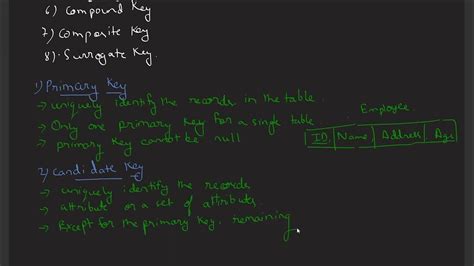 6) Compound Key
7) Composite Key
8) Surrogate Key.
1) Primary Key
→ uniquely identify the records in the table.
→ Only one primary key for a single table
→ primary key cannot be null
Employee
ID Name Address Age
2) Candidate Key
→ uniquely identify the records
→ attribute or a set of attributes.
→ Except for the primary key, remaining